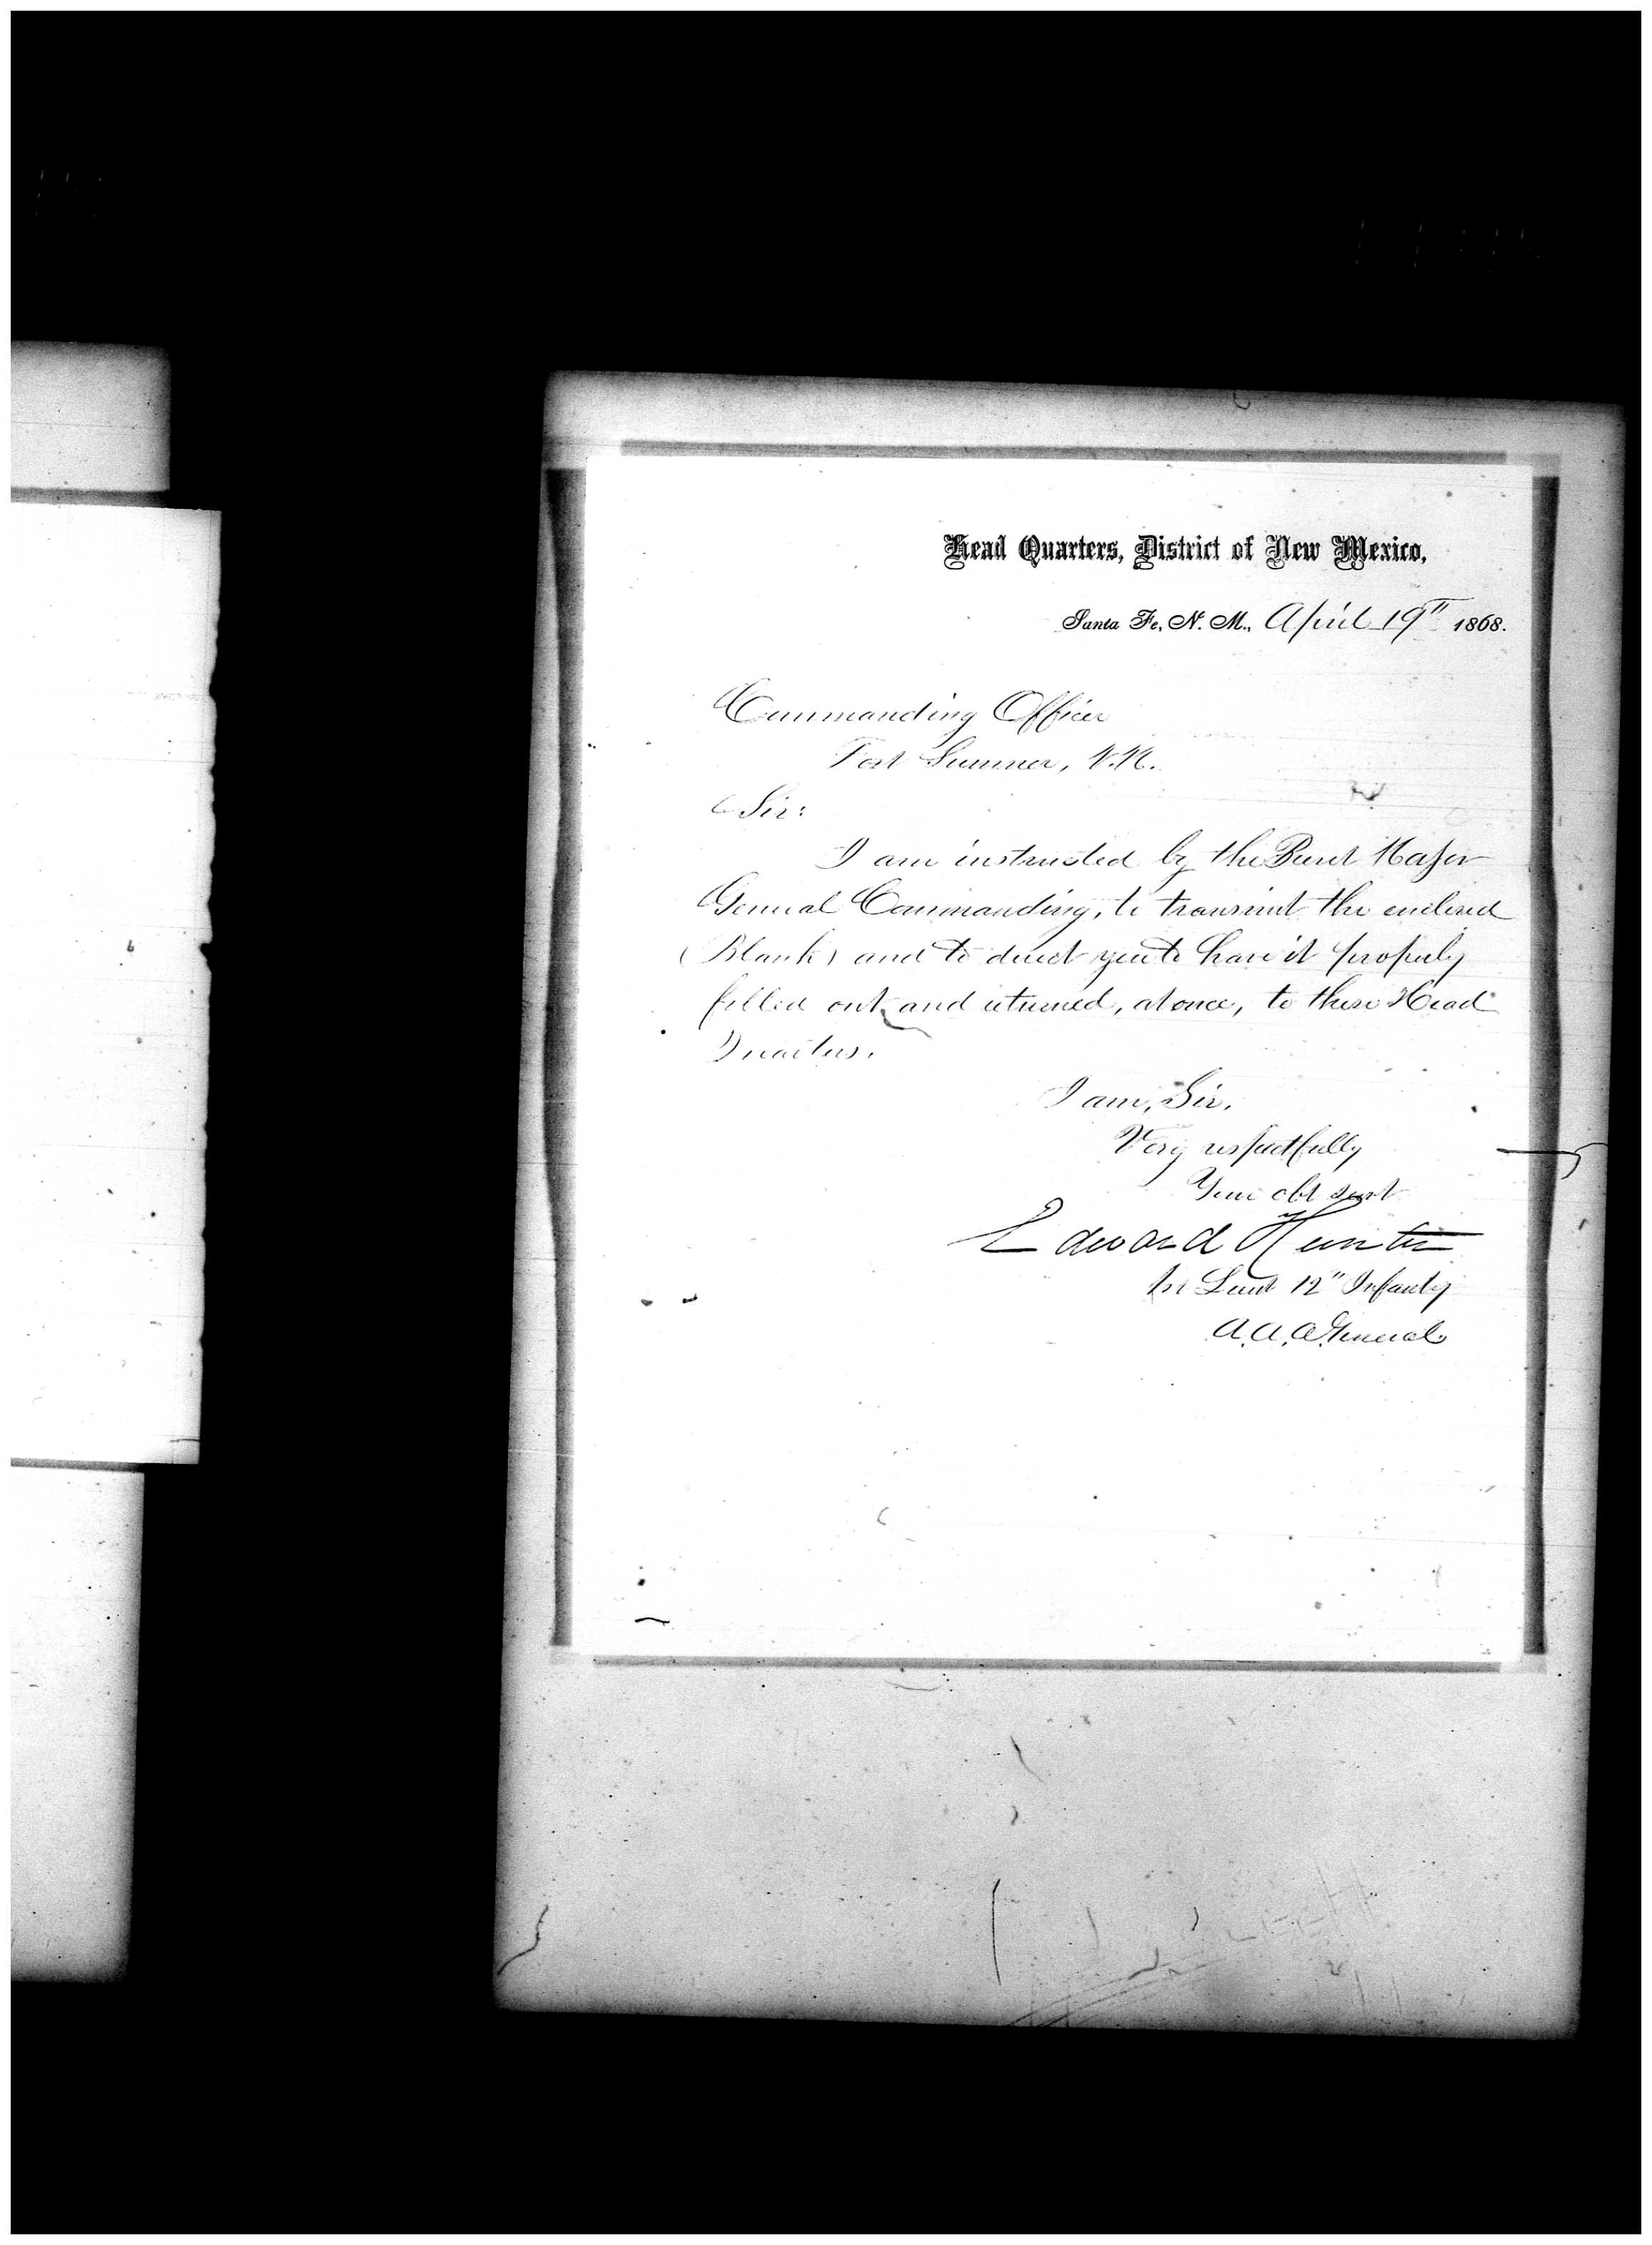 Head Quarters, District of New Mexico,
Santa Fe, N. M., April 19" 1868.
Commanding Officer
Fort Sumner, N.M.
Sir:
I am instructed by the Brevet Major
General Commanding, to transmit the enclosed
(Blank) and to direct you to have it properly
filled out and returned, at once, to these Head
Quarters.
I am, Sir,
Very respectfully
Your obt servt
Edward Hunter
1st Lieut 12" Infantry
A.A.A. General